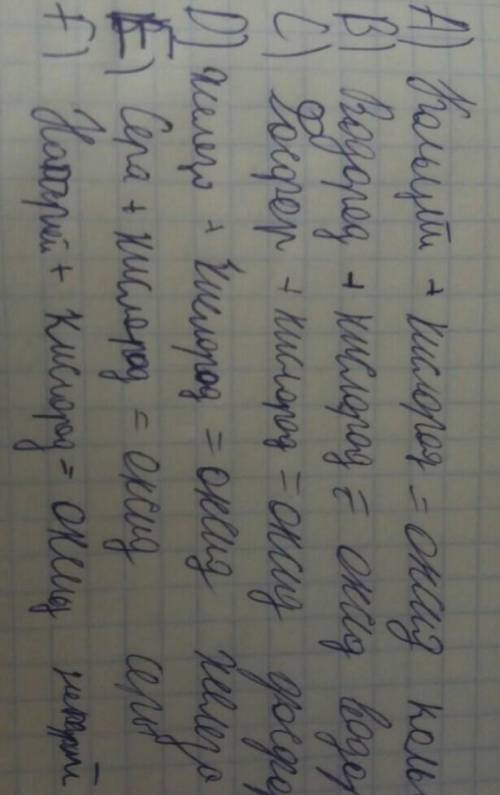 A) Кальций + кислород = оксид каль
B) Водород + кислород = оксид водор
C) Фосфор + кислород = оксид фосфо
D) железо + кислород = оксид железо
E) Сера + кислород = оксид серы
F) Натрий + кислород = оксид натрий